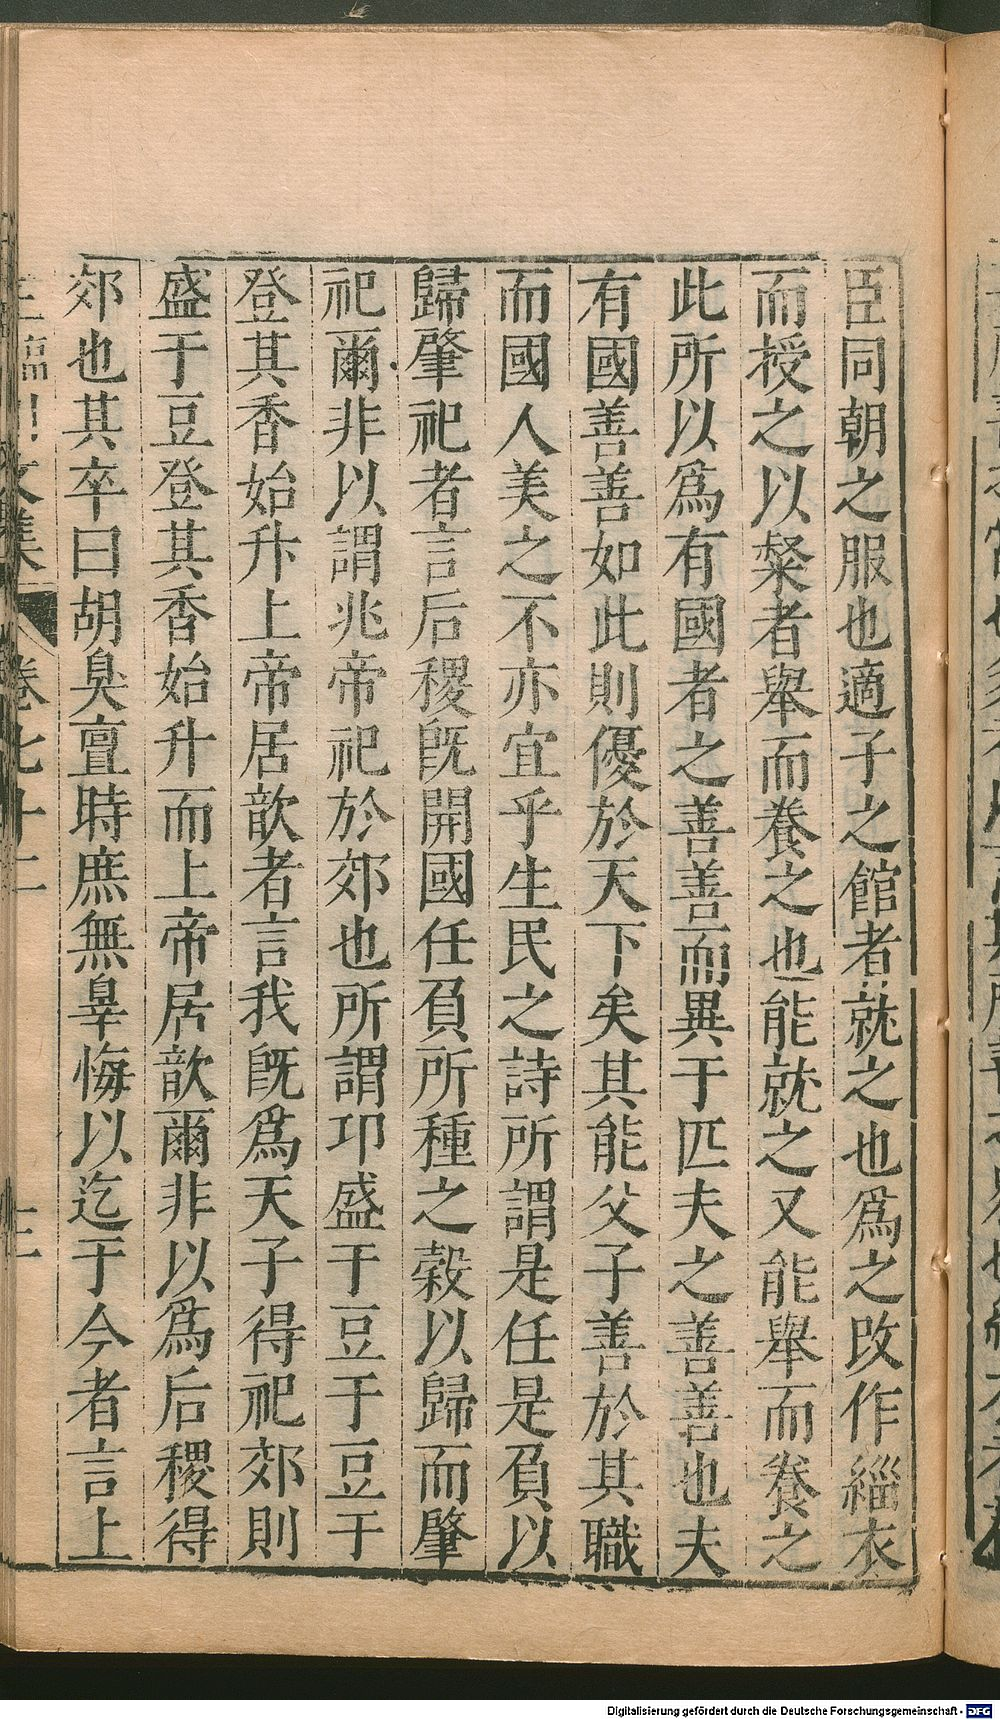 臣同朝之服也適子之館者就之也爲之改作緇衣
而授之以粲者舉而養之也能就之又能舉而養之
此所以爲有國者之善善而異于匹夫之善善也夫
有國善善如此則優於天下矣其能父子善於其職
而國人美之不亦宜乎生民之詩所謂是任是負以
歸肇祀者言后稷既開國任負所種之穀以歸而肇
祀爾非以謂兆帝祀於郊也所謂卬盛于豆于豆于
登其香始升上帝居歆者言我既爲天子得祀郊則
盛于豆登其香始升而上帝居歆爾非以爲后稷得
郊也其卒曰胡臭亶時庶無辠悔以迄于今者言上
卷七十二
三
Digitalisierung gefördert durch die Deutsche Forschungsgemeinschaft - DFG